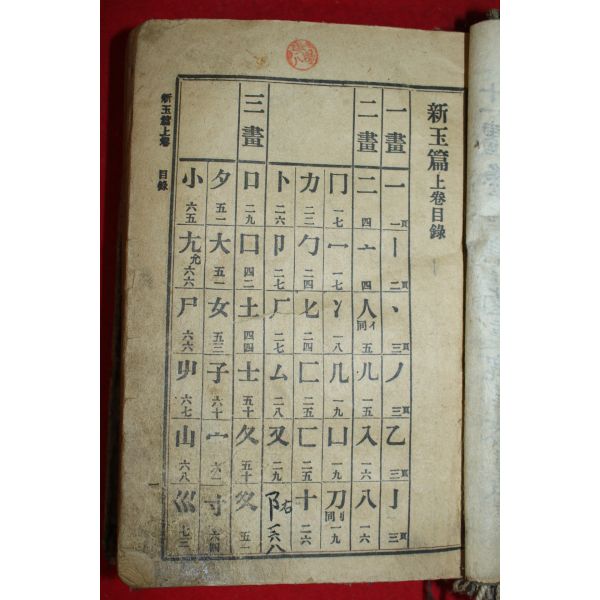 新玉篇上卷目錄
一畫
一 一頁
丨 二頁
丶 三頁
丿 三頁
乙 三頁
亅 三頁
二畫
二 四
亠 四
人 亻同 五
儿 一五
入 一六
八 一六
冂 一七
冖 一七
冫 一八
几 一九
凵 一九
刀 刂同 一九
力 二二
勹 二四
匕 二四
匚 二五
匸 二五
十 二六
卜 二六
卩 二七
厂 二七
厶 二八
又 二九
阝右 一六八
三畫
口 二九
囗 四二
土 四四
士 五十
夂 五十
夊 五一
夕 五一
大 五一
女 五三
子 六十
宀 六一
寸 六四
小 六五
尢 尣 六六
尸 六六
屮 六七
山 六八
巛 七三
新玉篇上卷 目錄